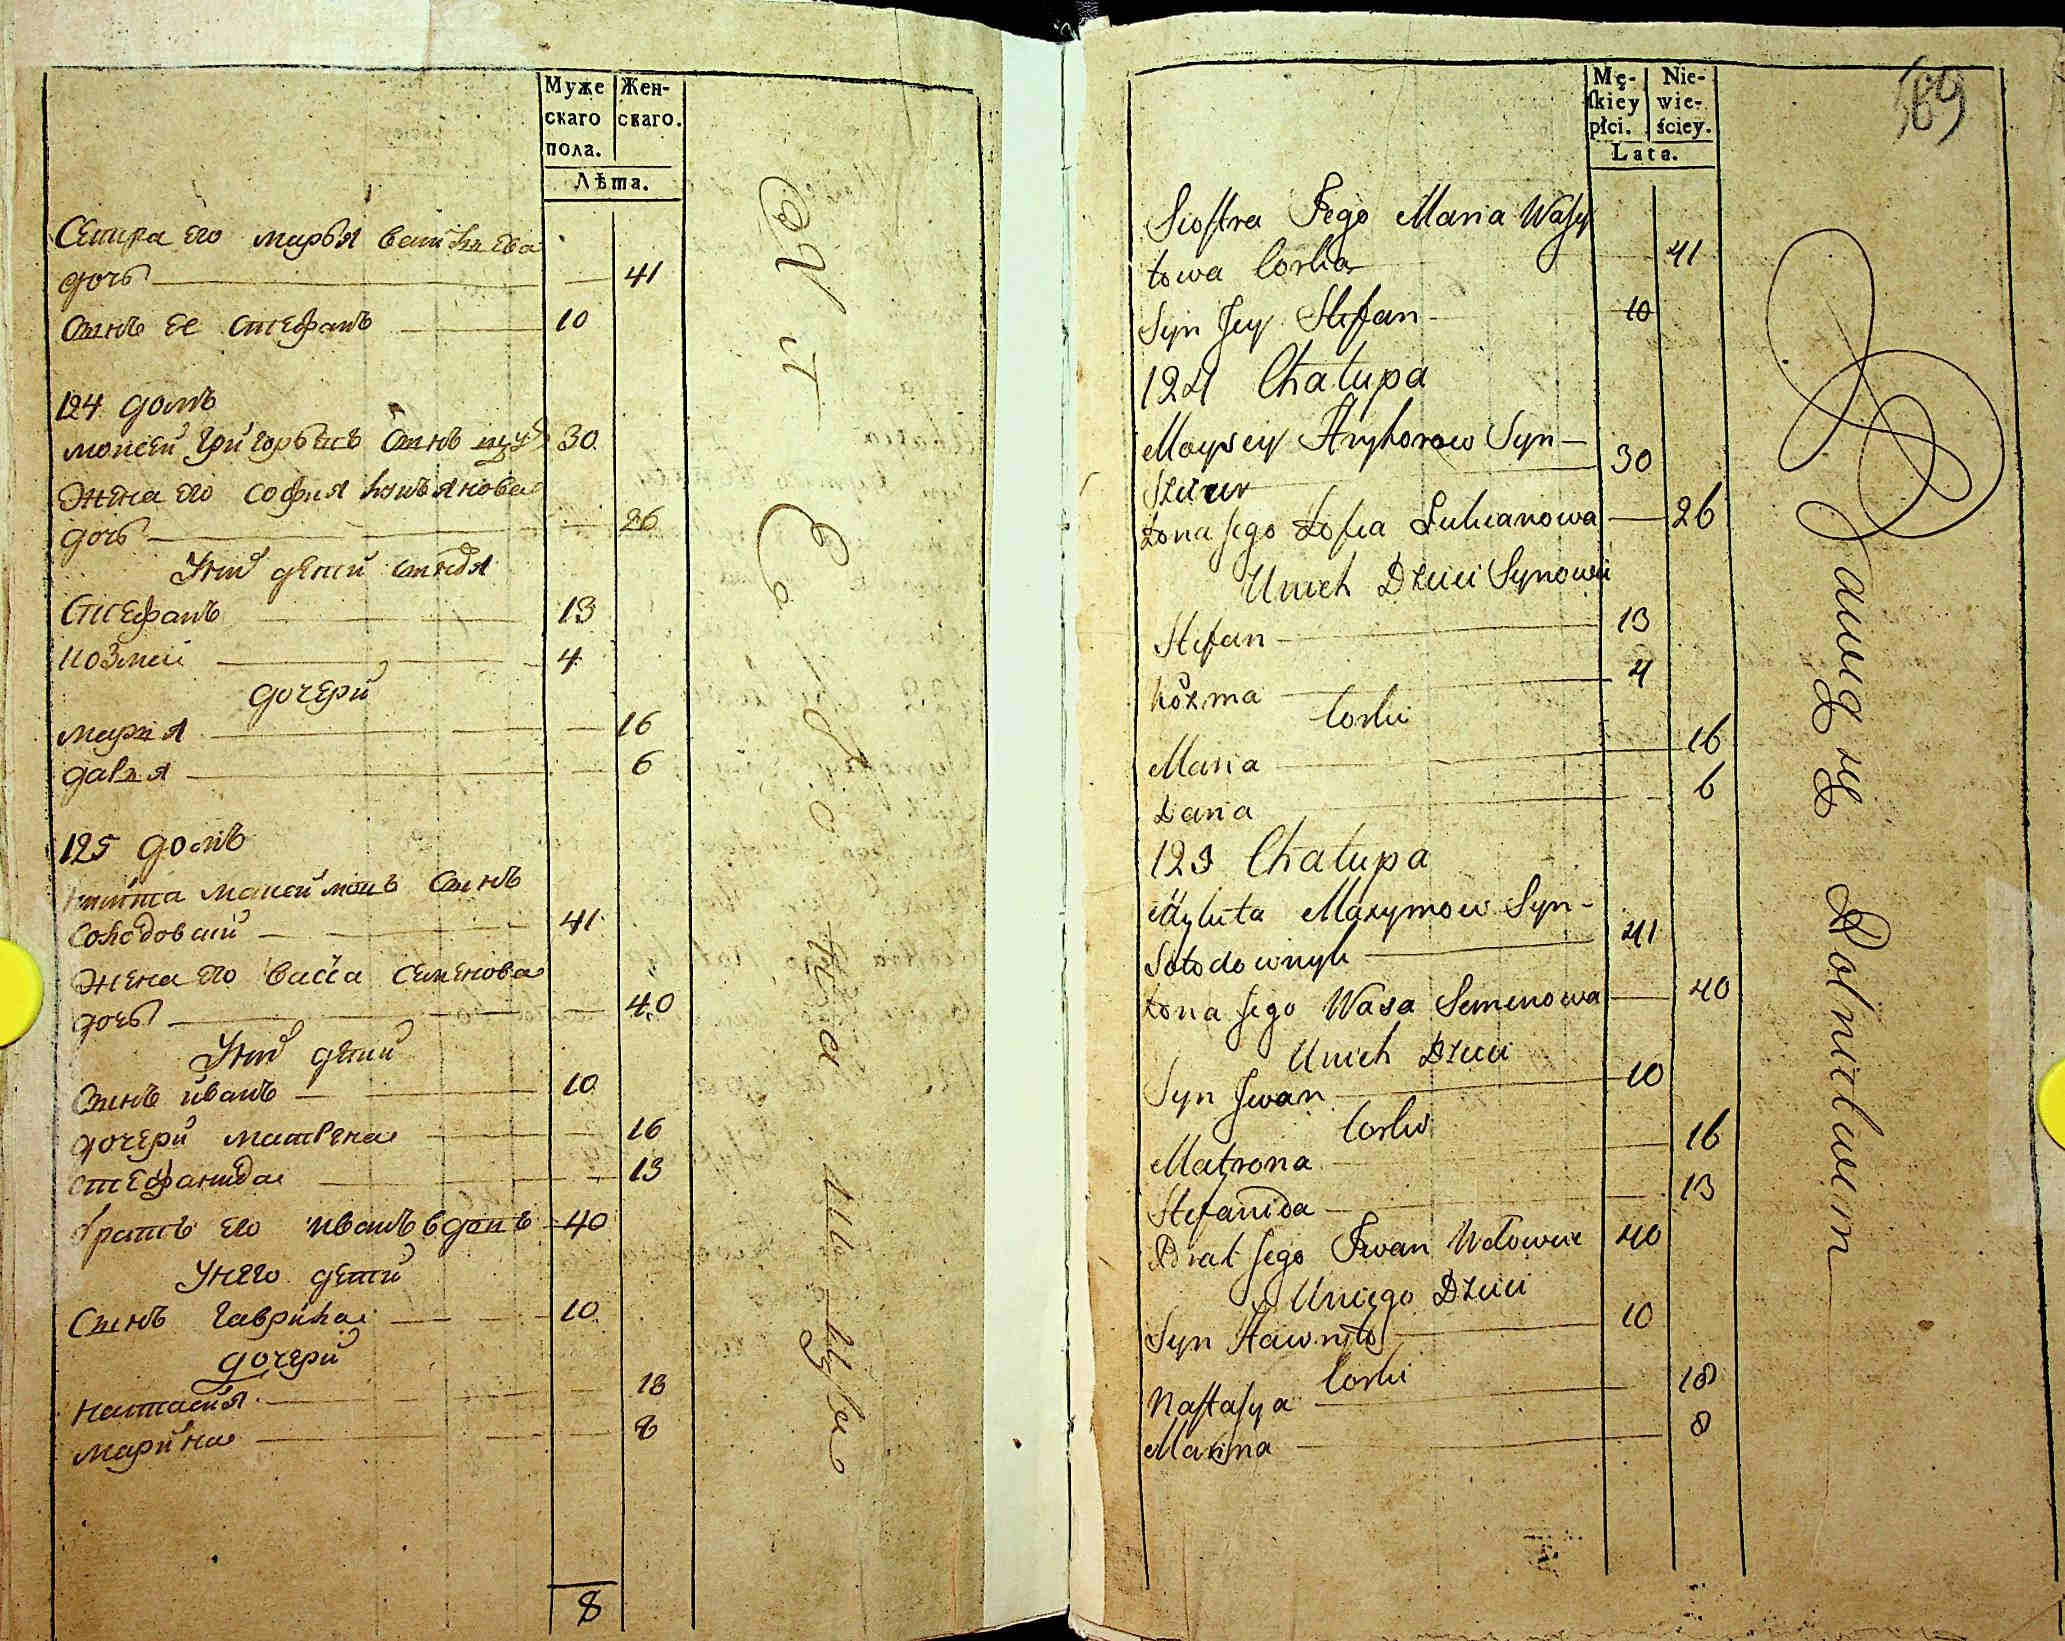 Муже
скаго
пола.
Жен-
скаго.
Лѣта.
Сестра его марья
дочь 41
Сынъ ее стефанъ 10
124 домъ
моисей григорьевъ сынъ 30
жена его софия лукьянова
дочь 26
У ныхъ дети сыновья
Стефанъ 13
козма 4
дочери
мария 16
дария 6
125 домъ
никита максимовъ сынъ
солодовный 41
жена его васса семенова
дочь 40
У ныхъ дети
Сынъ иванъ 10
дочери матрена 16
стефанида 13
братъ его иванъ вдовъ 40
У него дети
Сынъ гаврила 10
дочери
настасия 18
марина 8
8
Mę-
skiey
płci.
Nie-
wie-
ściey.
Lata.
169
Siostra Jego Maria Wasy
lowa Corka 41
Syn Jey Stefan 10
124 Chałupa
Moysey Hryhorow Syn 30
Żona Jego Zofia Lukianowa 26
U nich Dzieci Synowie
Stefan 13
Kozma 4
Corki
Maria 16
Daria 6
125 Chałupa
Mykita Maxymow Syn
Sołodownyk 41
Żona Jego Wasa Semenowa 40
U nich Dzieci
Syn Jwan 10
Corki
Matrona 16
Stefanida 13
Brat Jego Jwan Wdowiec 40
U niego Dzieci
Syn Hawryło 10
Corki
Nastasya 18
Marina 8